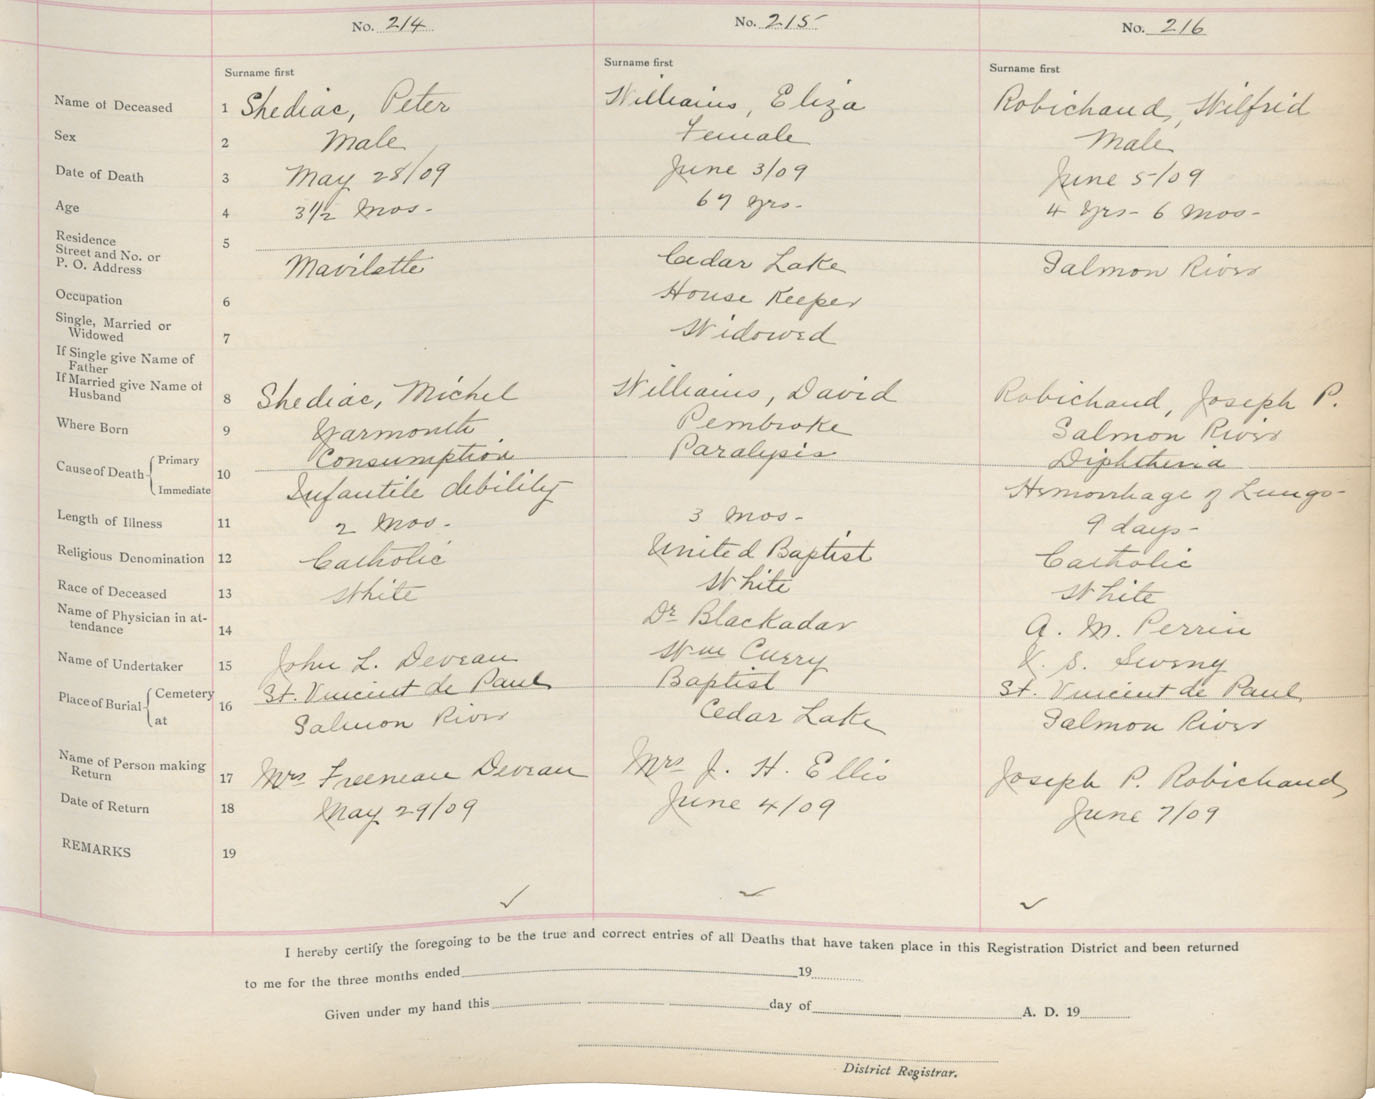 No. 214 No. 215 No. 216
Surname first Surname first Surname first
Name of Deceased 1 Shediac, Peter Williams, Eliza Robichaud, Wilfrid
Sex 2 Male Female Male
Date of Death 3 May 28/09 June 3/09 June 5/09
Age 4 3 1/2 Mos- 67 Yrs- 4 Yrs- 6 Mos-
Residence 5
Street and No. or
P. O. Address Mavilette Cedar Lake Salmon River
Occupation 6 House Keeper
Single, Married or
Widowed 7 Widowed
If Single give Name of
Father
If Married give Name of
Husband 8 Shediac, Michel Williams, David Robichaud, Joseph P.
Where Born 9 Yarmouth Pembroke Salmon River
Cause of Death Primary 10 Consumption Paralysis Diphtheria
Immediate Infantile debility Hemorrhage of Lungs-
Length of Illness 11 2 Mos- 3 Mos- 9 days-
Religious Denomination 12 Catholic United Baptist Catholic
Race of Deceased 13 White White White
Name of Physician in at-
tendance 14 Dr Blackadar A. M. Perrin
Name of Undertaker 15 John L. Deveau Wm Curry V. S. Sweny
Place of Burial Cemetery 16 St. Vincent de Paul Baptist St. Vincent de Paul
at Salmon River Cedar Lake Salmon River
Name of Person making
Return 17 Mrs Freeneau Deveau Mrs J. H. Ellis Joseph P. Robichaud
Date of Return 18 May 29/09 June 4/09 June 7/09
REMARKS 19
I hereby certify the foregoing to be the true and correct entries of all Deaths that have taken place in this Registration District and been returned
to me for the three months ended 19
Given under my hand this day of A. D. 19
District Registrar.